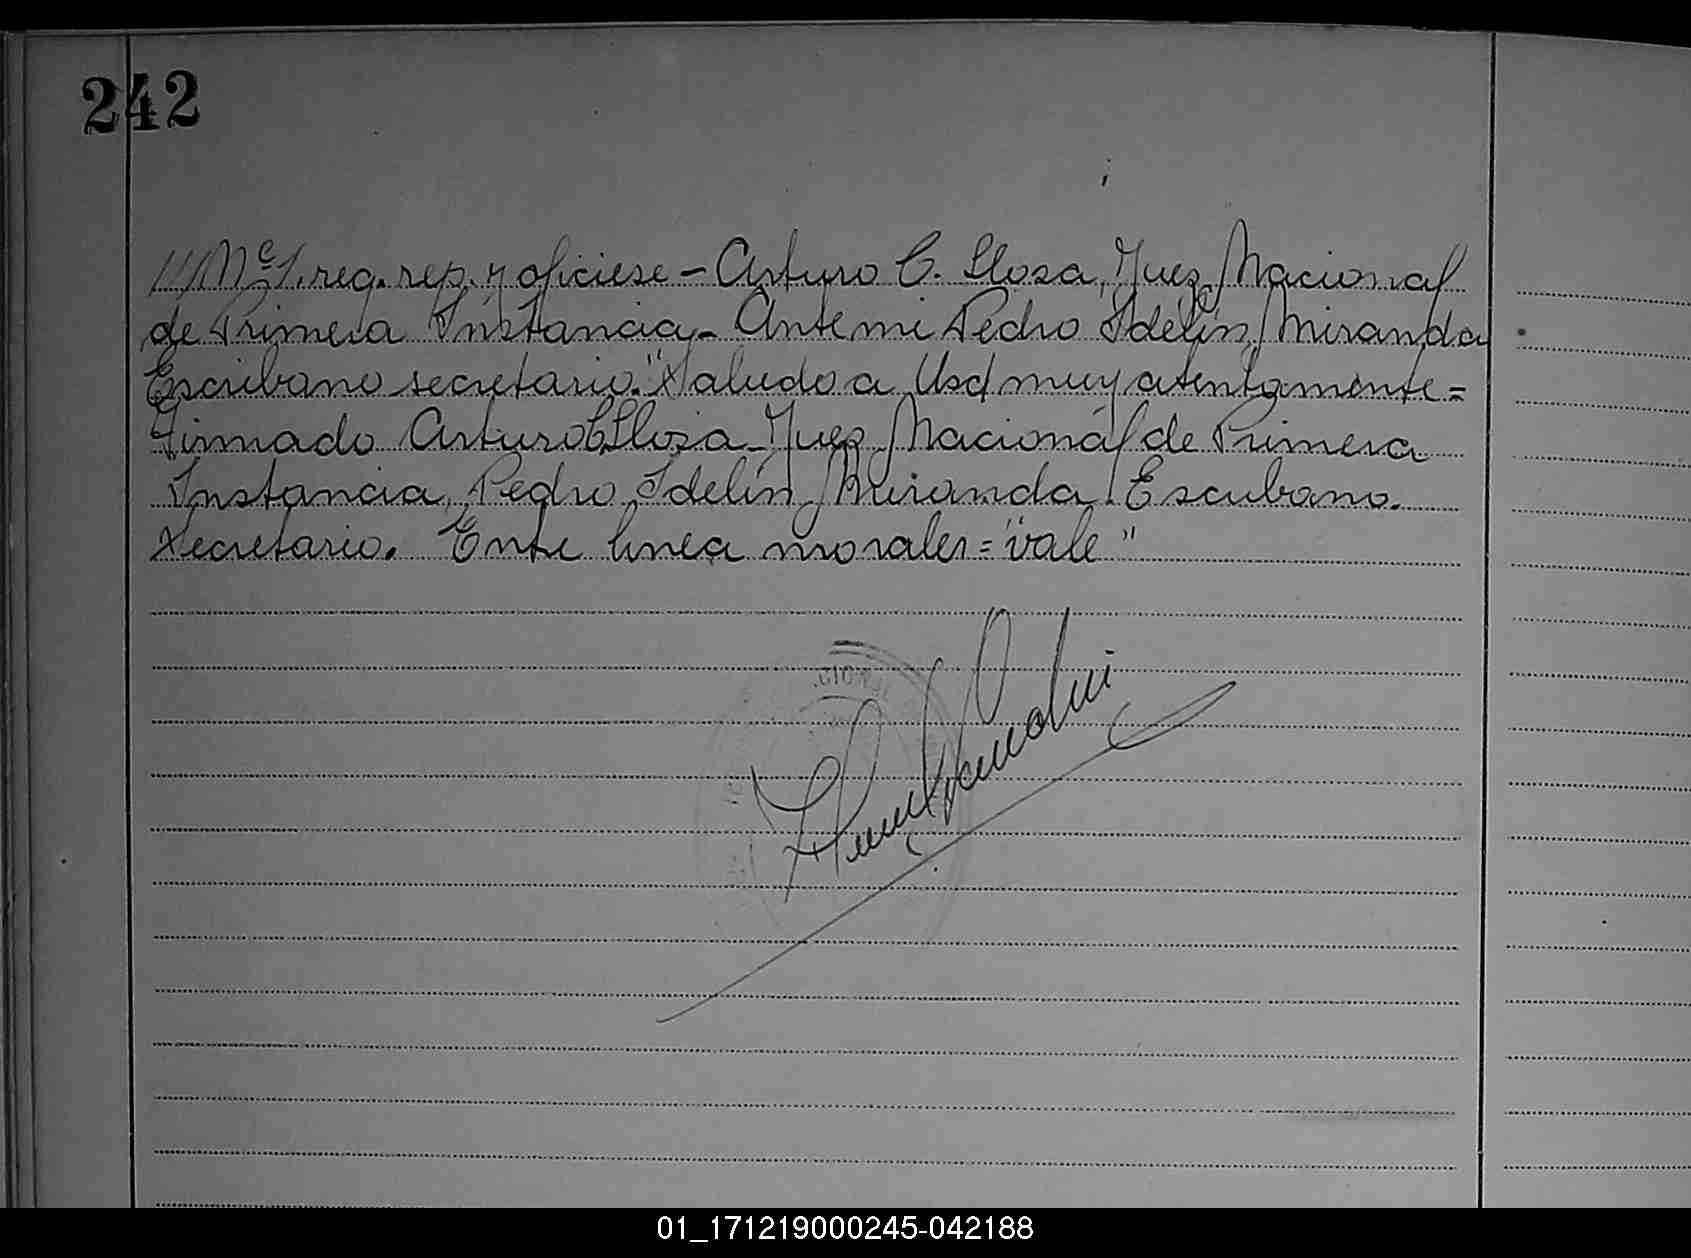 242
///Nº1. reg. rep. y oficiese - Arturo C. Llosa, Juez Nacional
de Primera Instancia - Ante mi Pedro Idelín Miranda
Escribano secretario." Saludo a Usd muy atentamente =
Firmado Arturo C Llosa - Juez Nacional de Primera
Instancia, Pedro Idelín Miranda. Escribano.
Secretario. Entre linea morales = "vale"
01_171219000245-042188